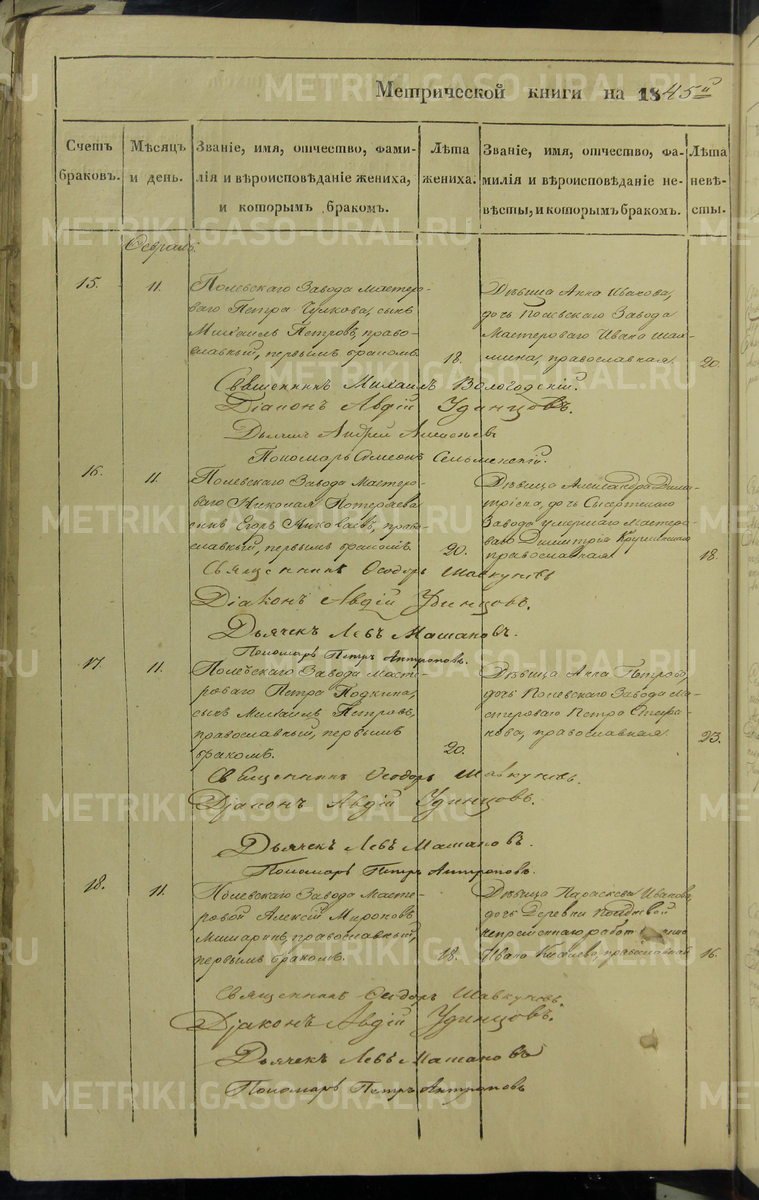 Метрической книги на 1845й
Счетъ браковъ.
Мѣсяцъ и день.
Званіе, имя, отчество, фами-
лія и вѣроисповѣданіе жениха,
и которымъ бракомъ.
Лѣта жениха.
Званіе, имя, отчество, фа-
милія и вѣроисповѣданіе не-
вѣсты, и которымъ бракомъ.
Лѣта невѣ-
сты.
Февраль.
15.
11.
Полевскаго Завода мастеро-
ваго Петра Чулкова, сынъ
Михаилъ Петровъ, право-
славный, первымъ бракомъ
18.
Дѣвица Анна Иванова,
дочь Полевскаго Завода
Мастероваго Ивана Шах-
мина, православная
20.
Священникъ Михаилъ Вологодскій.
Діаконъ Авдій Удинцовъ.
Дьячекъ Андрей
Пономарь Симеонъ
16.
11.
Полевскаго Завода Мастеро-
ваго Николая
сынъ Егоръ Николаевъ, право-
славный, первымъ бракомъ
20.
Дѣвица Александра Дими-
тріева, дочь Сысертскаго
Завода умершаго Мастеро-
ваго Димитрія
православная
18.
Священникъ Ѳеодоръ Шавкуновъ
Діаконъ Авдій Удинцовъ.
Дьячекъ Левъ Машановъ.
Пономарь Петръ Антроповъ.
17.
11.
Полевскаго Завода Масте-
роваго Петра Подкина,
сынъ Михаилъ Петровъ,
православный, первымъ
бракомъ.
20.
Дѣвица Анна Петрова,
дочь Полевскаго Завода Ма-
стероваго Петра
православная
23.
Священникъ Ѳеодоръ Шавкуновъ.
Діаконъ Авдій Удинцовъ.
Дьячекъ Левъ Машановъ.
Пономарь Петръ Антроповъ.
18.
11.
Полевскаго Завода Масте-
ровой Алексій Мироновъ
Мишаринъ, православный,
первымъ бракомъ.
18.
Дѣвица Параскева Иванова,
дочь Деревни
Ивана православная
16.
Священникъ Ѳеодоръ Шавкуновъ.
Діаконъ Авдій Удинцовъ.
Дьячекъ Левъ Машановъ
Пономарь Петръ Антроповъ
METRIKI.GASO-URAL.RU